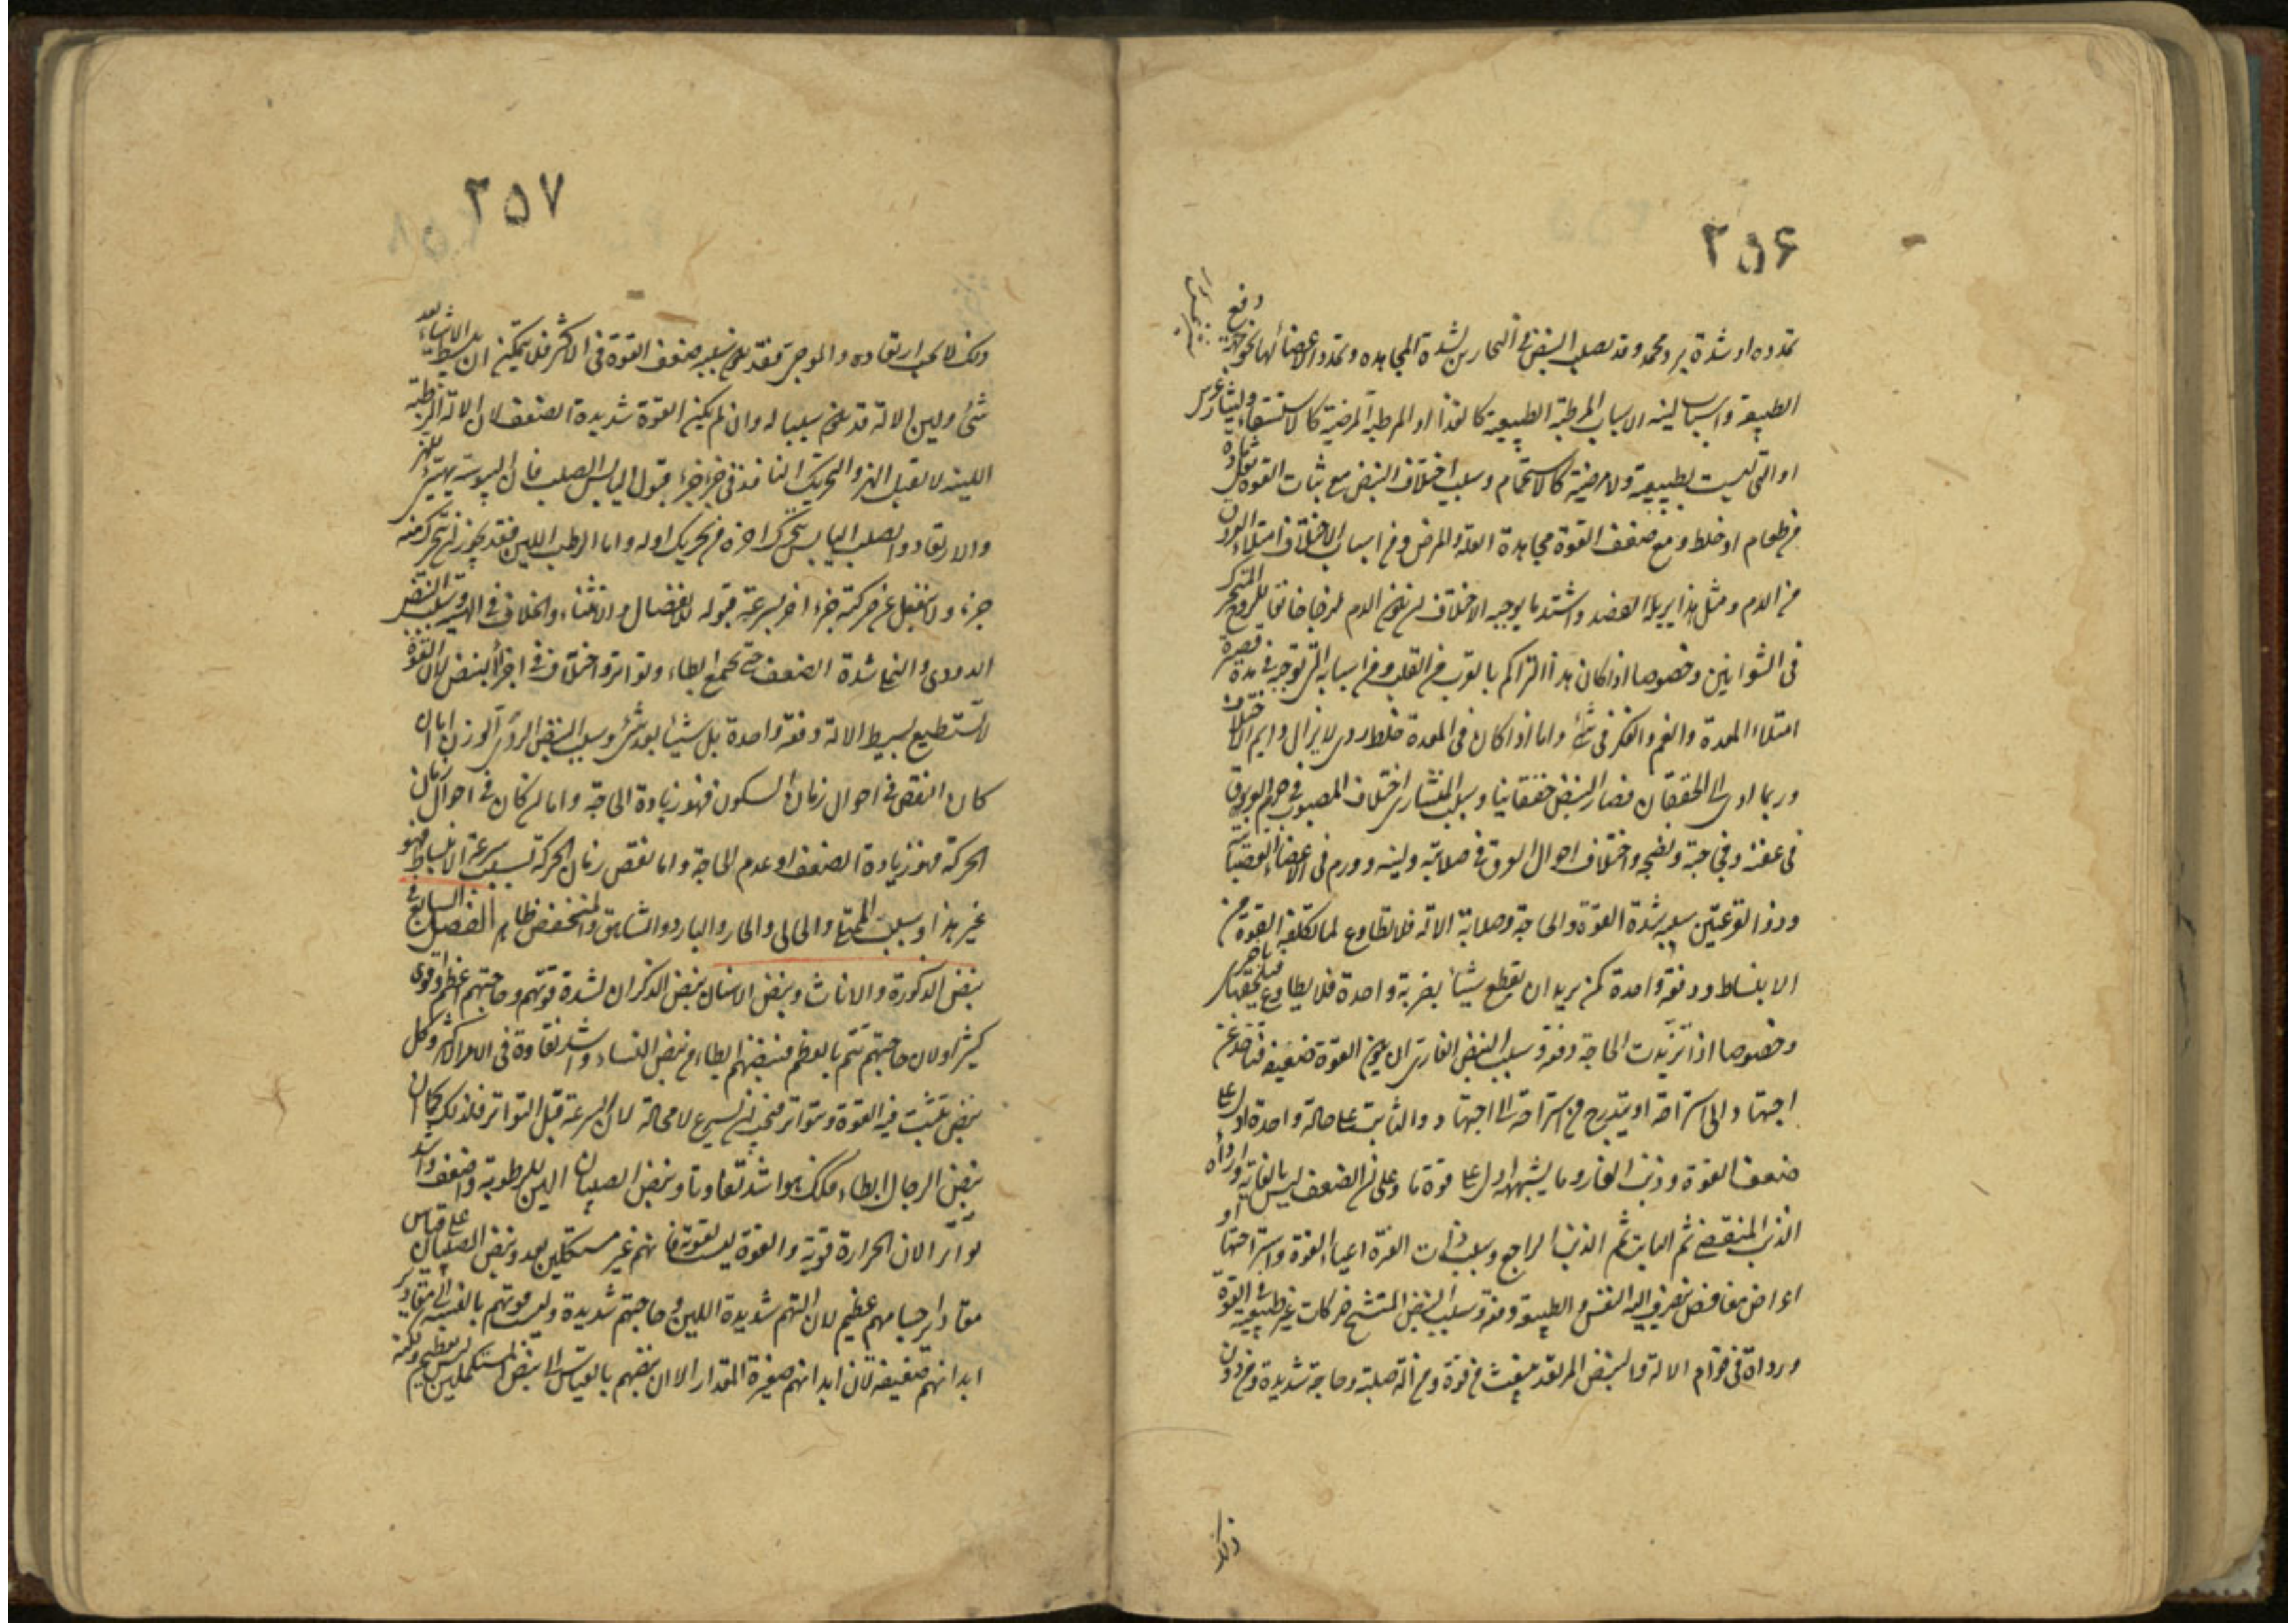 ٢٥۶
تمدده او شدة برد مجمد وقد يصلب النبض في البحارين لشدة المجاهدة وتمدد الاعضاء لها نحو جهة دفع
الطبيعة واسباب لينه الاسباب المرطبة الطبيعية كالغذاء او المرطبة المرضية كالاستسقاء وليثارغس
او التي ليست بطبيعية ولا مرضية كالاستحمام وسبب اختلاف النبض مع ثبات القوة ثقل مادة
من طعام او خلط ومع ضعف القوة مجاهدة العلة والمرض ومن اسباب الاختلاف امتلاء العروق
من الدم ومثل هذا يزيله الفصد واشد ما يوجب الاختلاف ان يكون الدم لزجا خانقا للروح المتحرك
في الشرايين وخصوصا اذا كان هذا التراكم بالقرب من القلب ومن اسبابه التي توجبه في مدة قصيرة
امتلاء المعدة والغم والفكر في شئ واما اذا كان في المعدة خلط ردى لا يزال دايم الاختلاف
وربما ادى الى الخفقان فصار النبض خفقانيا وسبب المنشاري اختلاف المصبوب في جرم العروق
في عفنه وفجاجته ونضجه واختلاف احوال العروق في صلابته ولينه وورم في الاعضاء العصبانية
وذو القرعتين سببه شدة القوة والحاجة وصلابة الالة فلا تطاوع لما تكلفه القوة من
الانبساط دفعة واحدة كمن يريد ان يقطع شيئا بضربة واحدة فلا يطاوعه فيلحقها باخرى
وخصوصا اذا تزيدت الحاجة دفعة وسبب النبض الفارى ان يكون القوة ضعيفة فتاخذ عن
اجتهاد الى استراحة او يتدرج من استراحة الى اجتهاد والثابت على حالة واحدة ادل على
ضعف القوة وذنب الفار وما يشبهه ادل على قوة ما وعلى ان الضعف ليس بالغاية وارداه
الذنب المنقضى ثم الثابت ثم الذنب الراجع وسبب ذات الفترة اعياء القوة واستراحتها او
عارض مغافص يتصرف اليه النفس والطبيعة دفعة وسبب النبض المتشنج حركات غير طبيعية في القوة
ورداة في قوام الالة والنبض المرتعد ينبعث من قوة ومن الة صلبة وحاجة شديدة ومن دون
ذلك
٢٥٧
ذلك لا يجب ارتعاده والموجى فقد يكون سببه ضعف القوة في الاكثر فلا يتمكن ان يبسط الا شيئا بعد
شئ ولين الالة قد يكون سببا له وان لم يكن القوة شديدة الضعف لان الالة الرطبة
اللينة لا تقبل الهز والتحريك النافذ في جزء جزء قبول اليابس الصلب فان اليبوسة تهيئ للهز
والارتعاد والصلب اليابس يتحرك اخره من تحريك اوله واما الرطب اللين فقد يجوز ان يتحرك منه
جزء ولا ينفعل عن حركته جزء اخر لسرعة قبوله للانفصال والانثناء والخلاف في الهيئة وسبب النبض
الدودى والنملى شدة الضعف حتى يجتمع ابطاء وتواتر واختلاف في اجزاء النبض لان القوة
لا تستطيع بسط الالة دفعة واحدة بل شيئا بعد شئ وسبب النبض الردى الوزن اما ان
كان النقص في احوال زمان السكون فهو زيادة الحاجة واما ان كان في احوال زمان
الحركة فهو زيادة الضعف او عدم الحاجة واما نقص زمان الحركة بسبب سرعة الانبساط فهو
غير هذا وسبب الممتلى والخالى والحار والبارد والشاهق والمنخفض ظاهر الفصل السابع في
نبض الذكورة والاناث ونبض الاسنان نبض الذكران لشدة قوتهم وحاجتهم اعظم واقوى
كثيرا ولان حاجتهم تتم بالعظم فنبضهم ابطاء من نبض النساء واشد تفاوتا في الامر الاكثر وكل
نبض تثبت فيه القوة وتتواتر فيجب ان يسرع لا محالة لان السرعة قبل التواتر فلذلك كما ان
نبض الرجال ابطاء فكذلك هو اشد تفاوتا ونبض الصبيان الين للرطوبة واضعف واشد
تواترا لان الحرارة قوية والقوة ليست بقوية فانهم غير مستكملين بعد ونبض الصبيان على قياس
مقادير اجسامهم عظيم لان التهم شديدة اللين وحاجتهم شديدة وليست قوتهم بالنسبة الى مقادير
ابدانهم ضعيفة لان ابدانهم صغيرة المقدار الا ان نبضهم بالقياس الى نبض المستكملين ليس بعظيم ولكنه